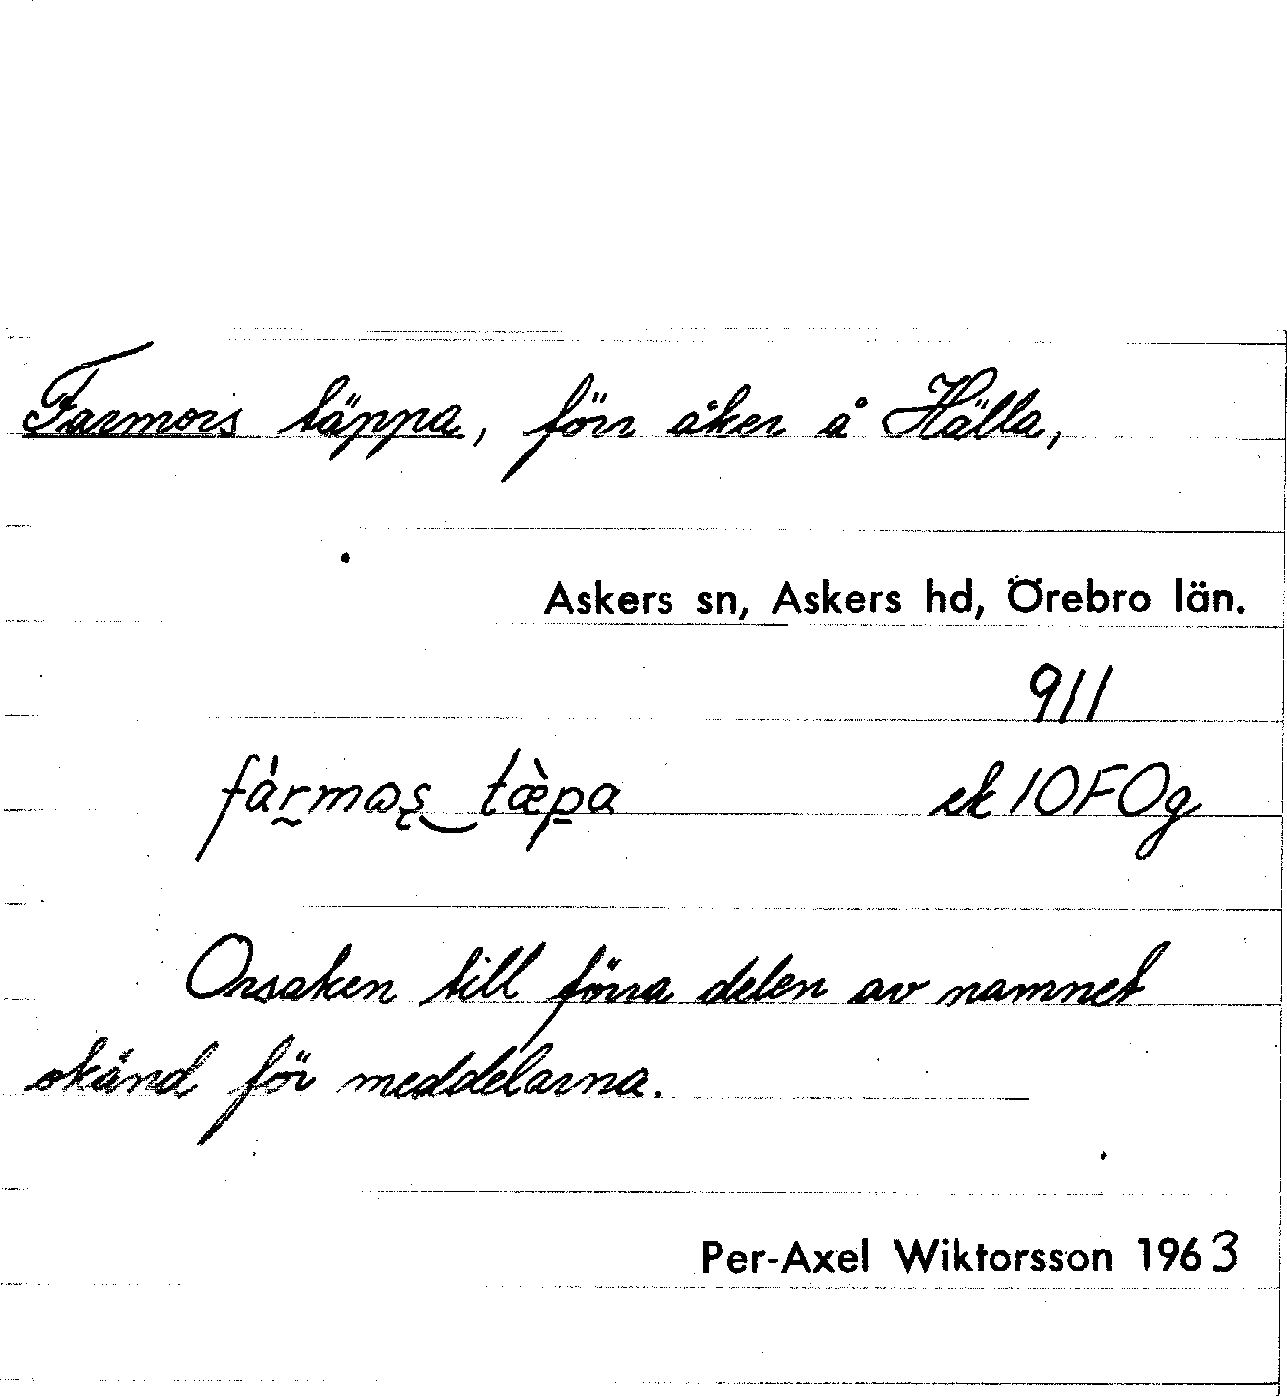 Farmors täppa, förr åker å Hälla,
Askers sn, Askers hd, Örebro län.
911
fármas tæ̀pa ek 10F0g
Orsaken till förra delen av namnet
okänd för meddelarna.
Per-Axel Wiktorsson 1963